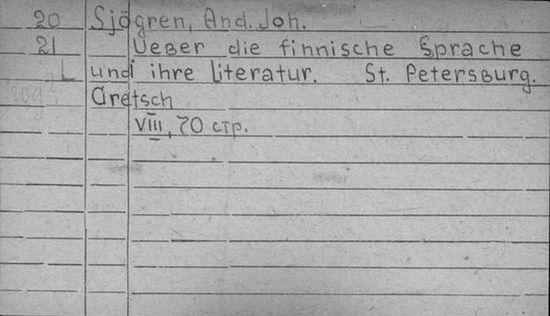 20 Sjögren, And. Joh.
21 Ueber die finnische Sprache
L und ihre literatur. St. Petersburg.
Gretsch
VIII, 70 стр.